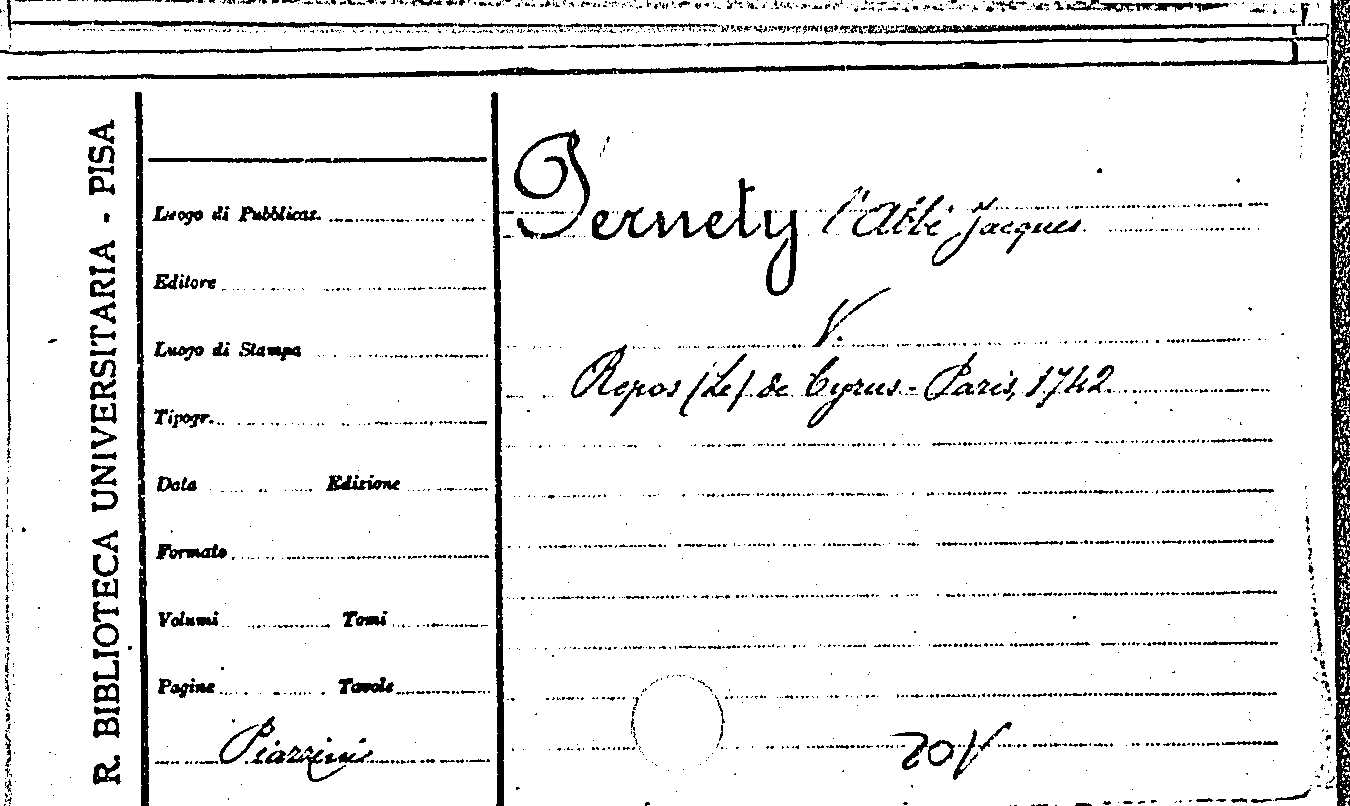 R. BIBLIOTECA UNIVERSITARIA - PISA
Luogo di Pubblicaz.
Editore
Luogo di Stampa
Tipogr.
Data Edizione
Formato
Volumi Tomi
Pagine Tavole
Piazzini
Pernety l'Abbé Jacques
V.
Repos (Le) de Cyrus - Paris, 1742